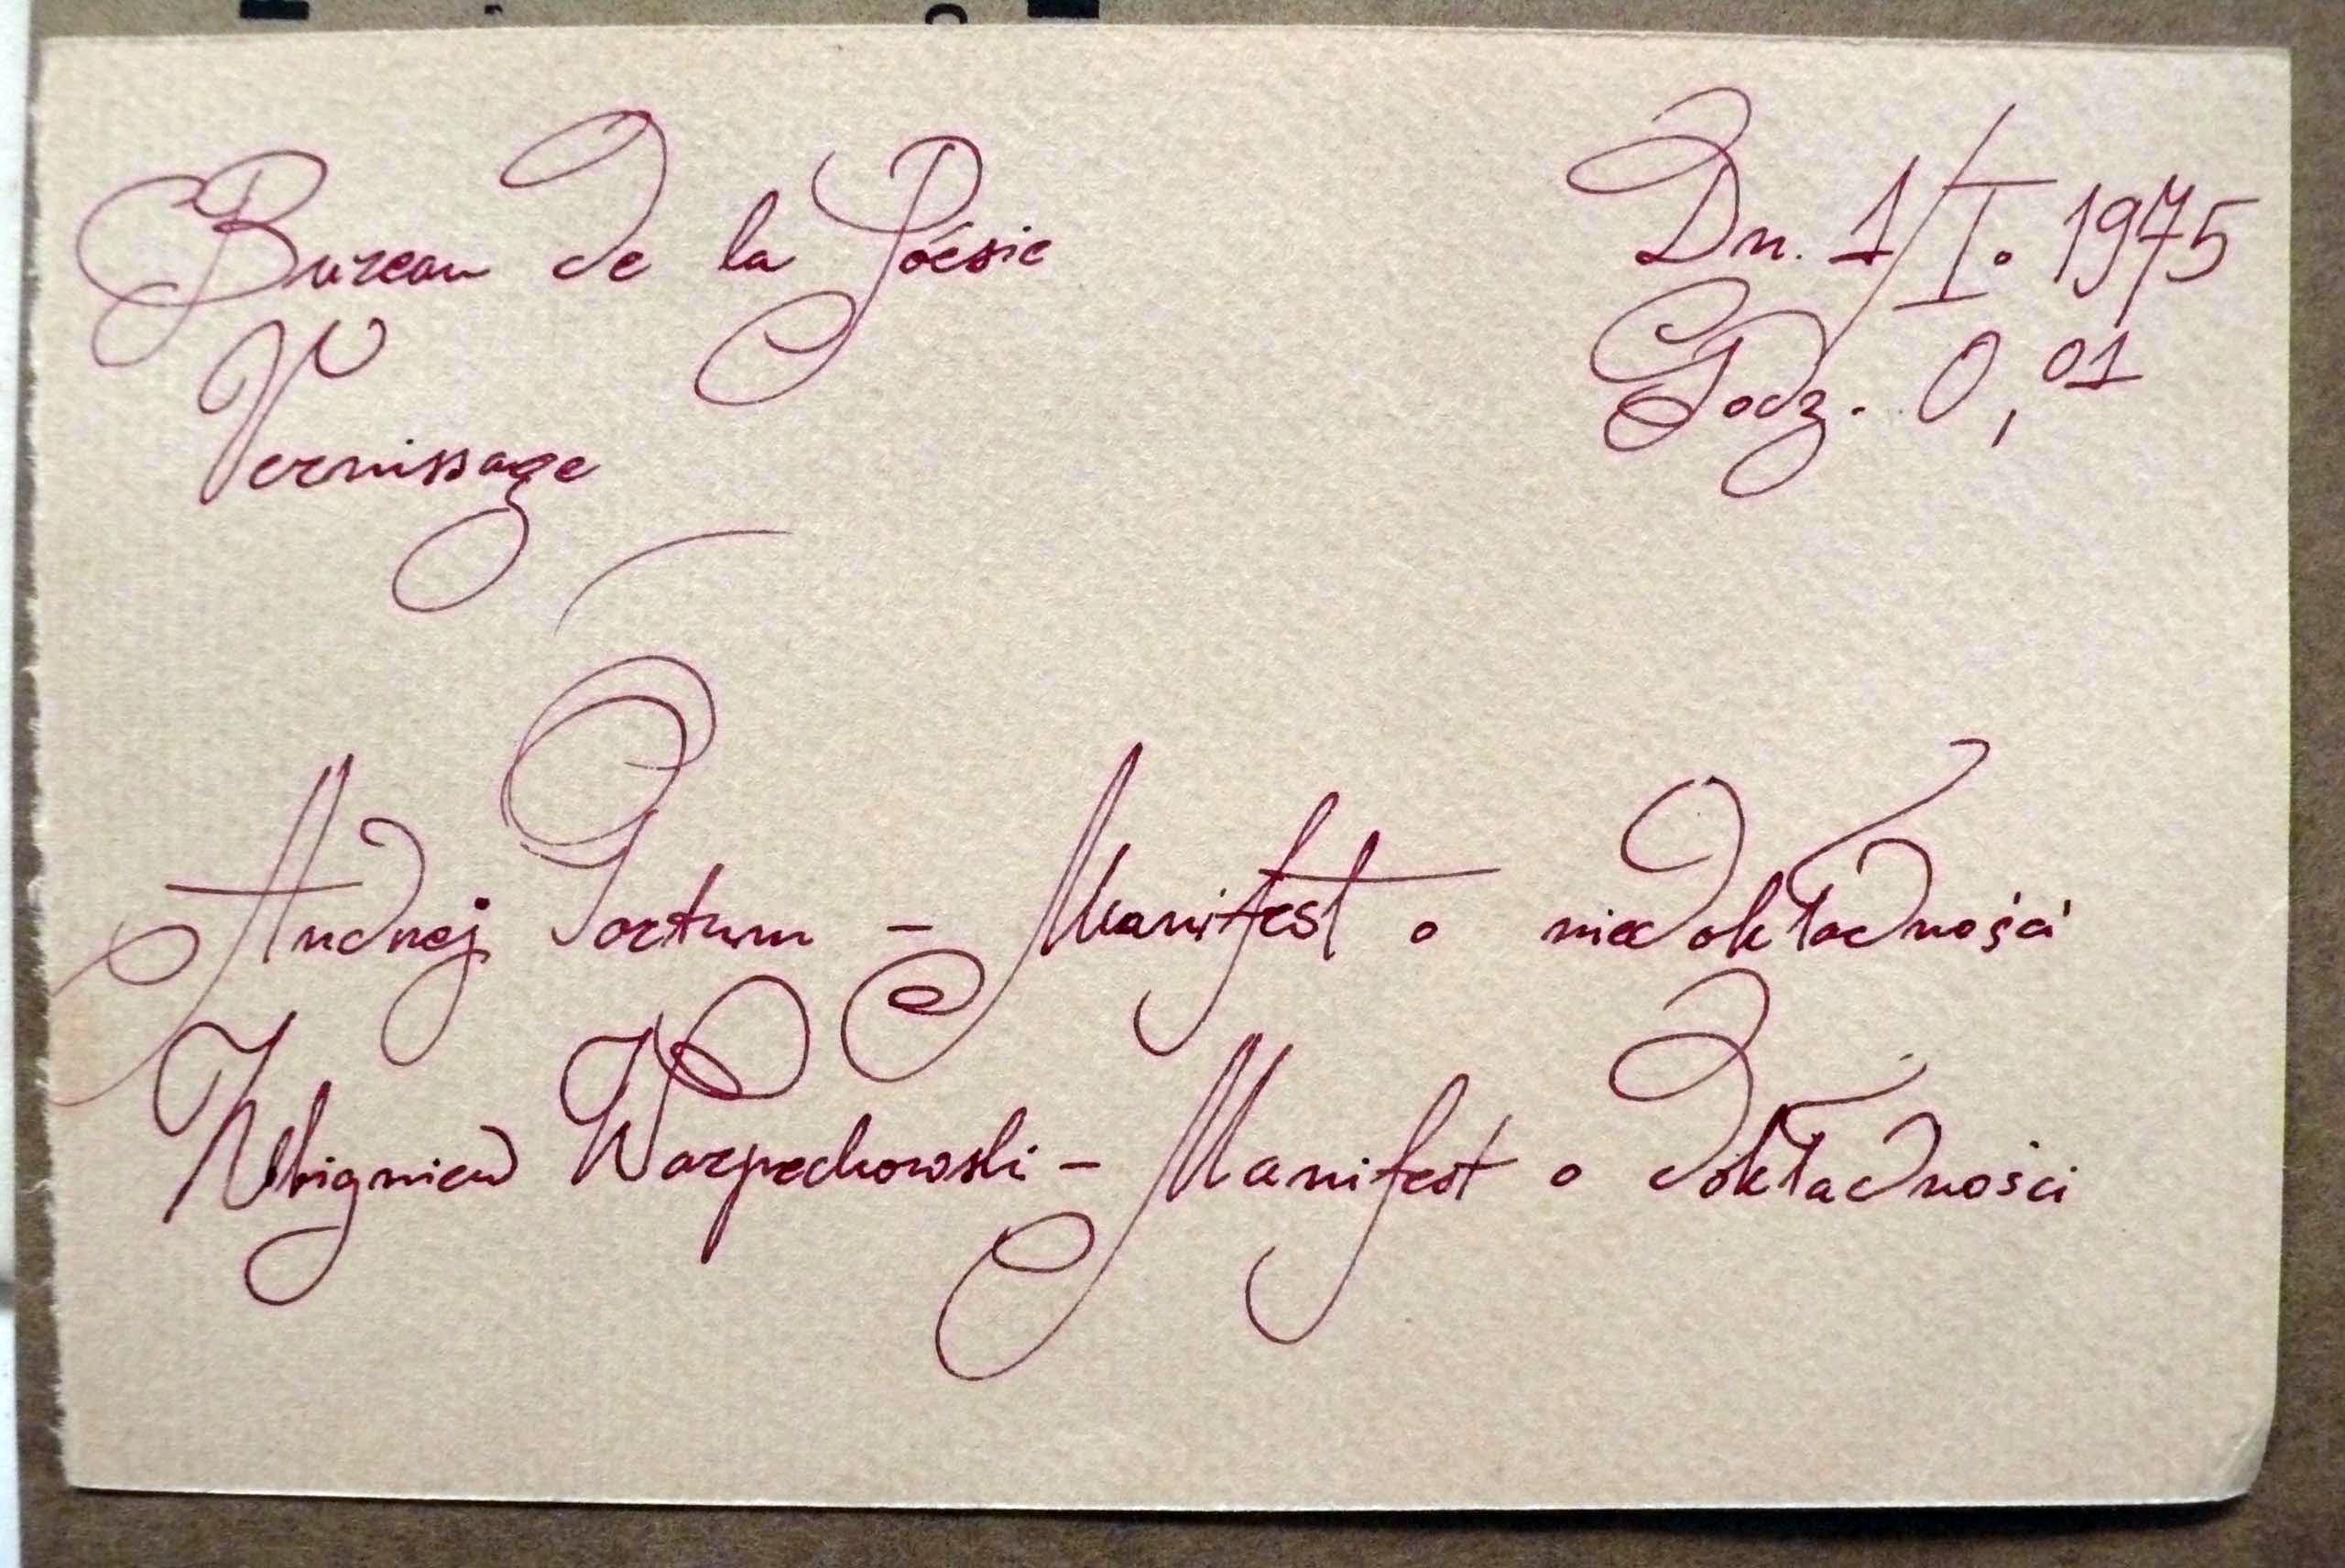 Bureau de la Poésie
Vernissage
Dn. 1/I. 1975
Godz. 0,01
Andrzej Partum – Manifest o niedokładności
Zbigniew Warpechowski – Manifest o dokładności